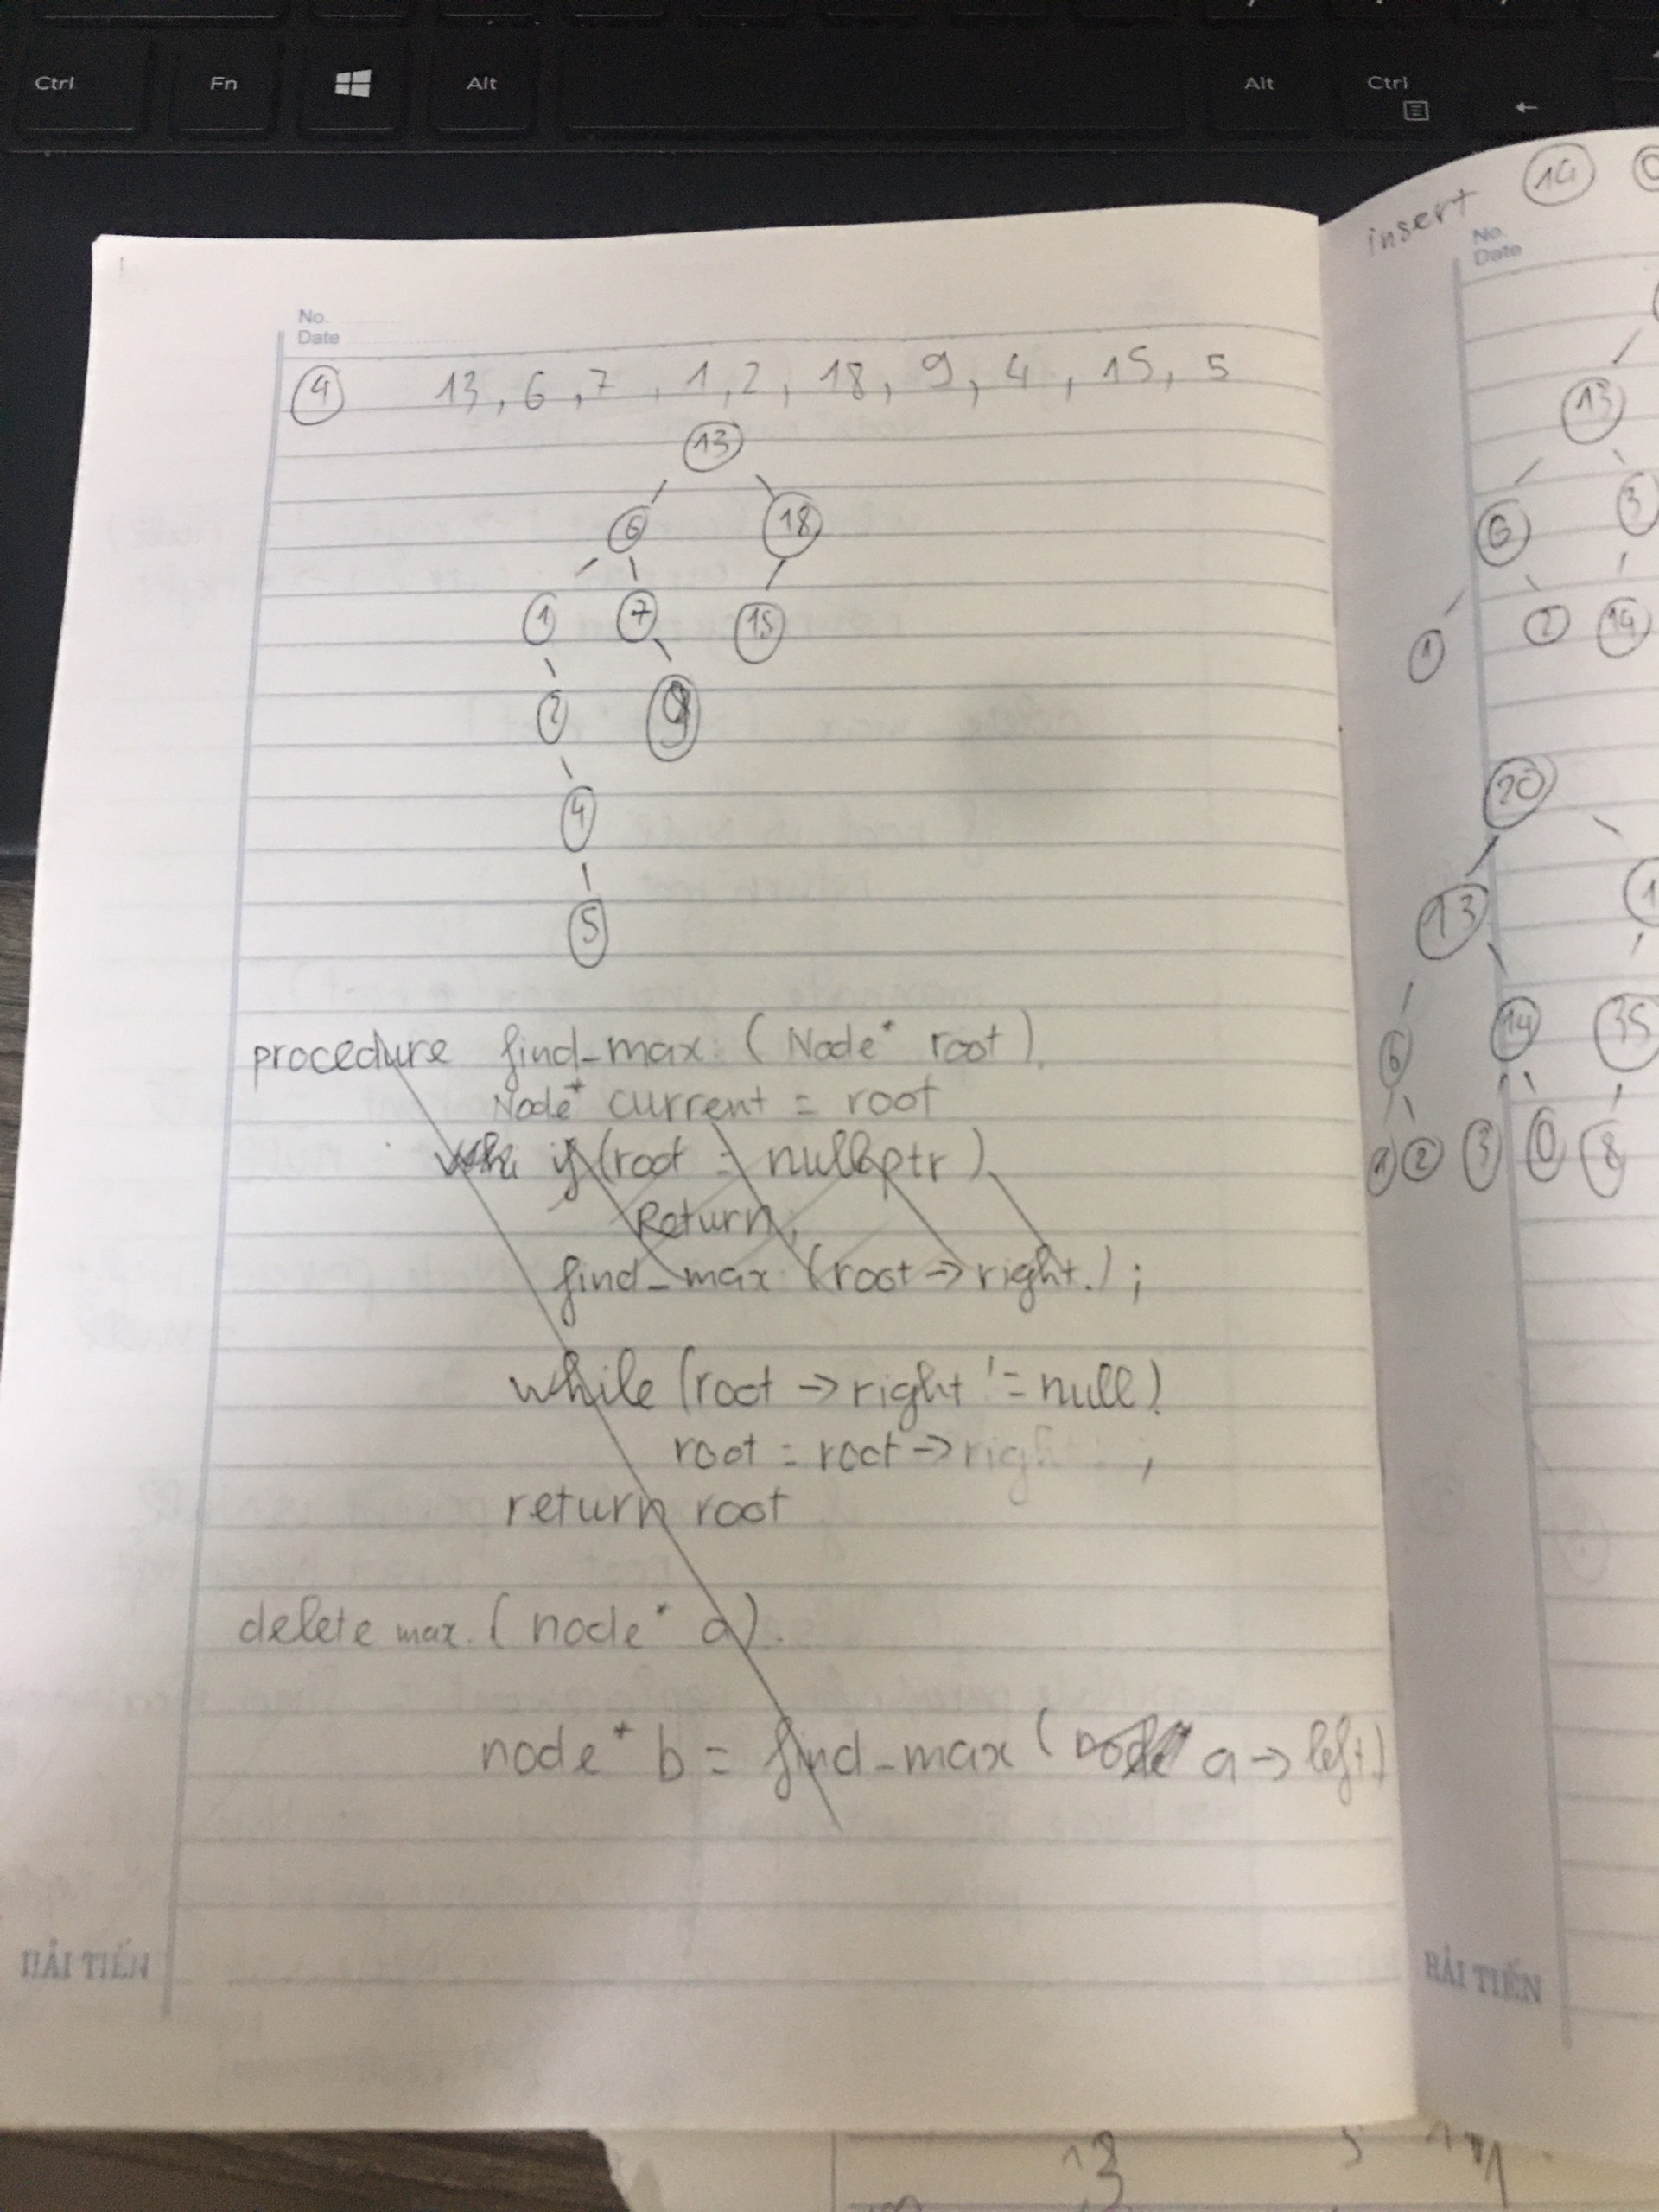 Ctrl Fn Alt Alt Ctrl
No.
Date
4 13, 6, 7, 1, 2, 18, 9, 4, 15, 5
13
6 18
1 7 15
2 9
4
5
procedure find_max (Node* root)
Node* current = root
if (root = nullptr)
Return;
find_max (root -> right);
while (root -> right != null)
root = root -> right ;
return root
delete max (node* a)
node* b = find_max ( a -> left)
HẢI TIẾN
insert 14
No.
Date
13
6 3
1 2 14
20
13
6 14 35
1 2 3 0 8
HẢI TIẾN
13 5